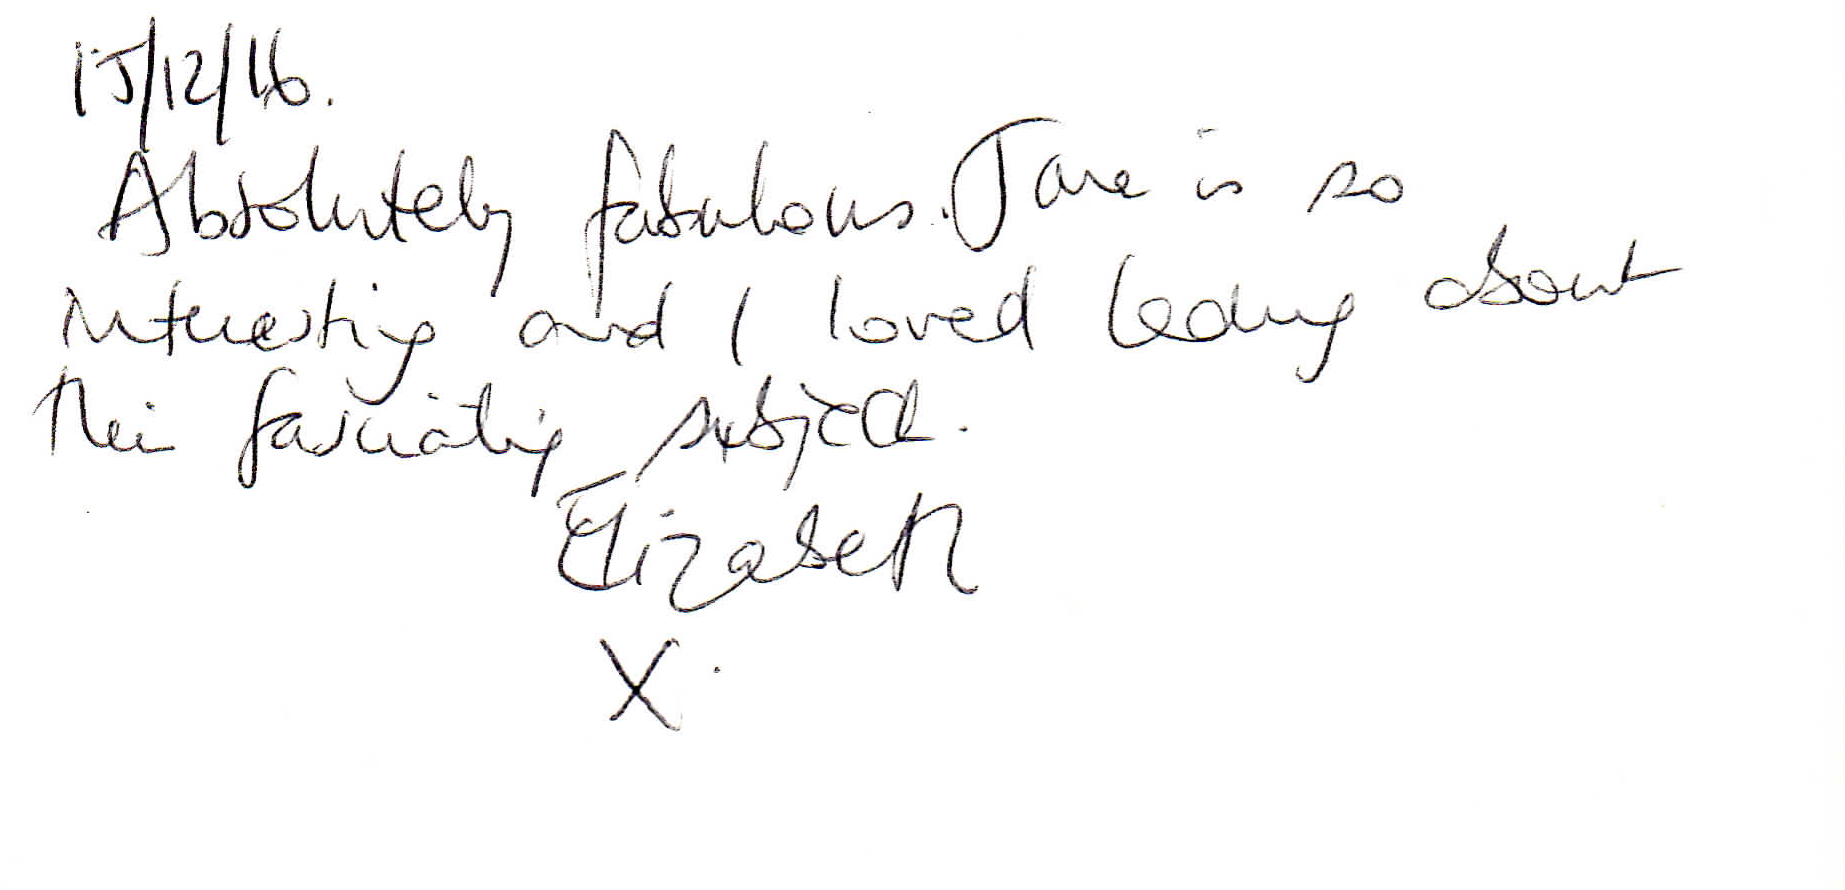 15/12/16.
Absolutely fabulous. Jane is so
interesting and I loved learning about
this fascinating subject.
Elizabeth
X.